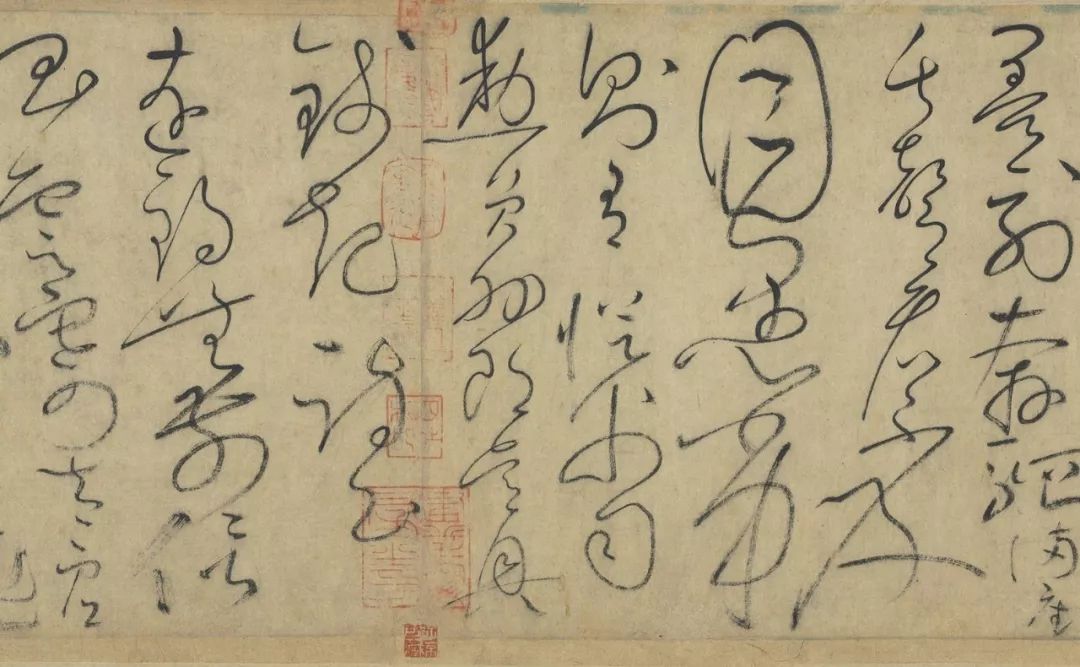 墨列奔駟滿座
失聲看不及
目愚劣
則有從父司
勳員外郎吳興
錢起詩云
遠錫無前侶
孤雲寄太虛